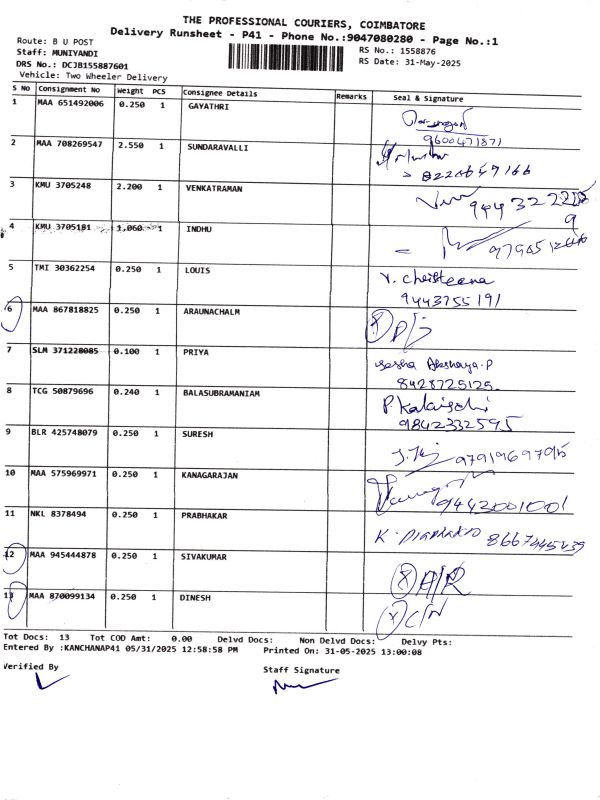 THE PROFESSIONAL COURIERS, COIMBATORE
Delivery Runsheet - P41 - Phone No.:9047080280 - Page No.:1
Route: B U POST RS No.: 1558876
Staff: MUNIYANDI RS Date: 31-May-2025
DRS No.: DCJB155887601
Vehicle: Two Wheeler Delivery
S No Consignment No Weight PCS Consignee Details Remarks Seal & Signature
1 MAA 651492006 0.250 1 GAYATHRI
9600471871
2 MAA 708269547 2.550 1 SUNDARAVALLI
3 KMU 3705248 2.200 1 VENKATRAMAN
4 KMU 3705181 1.060 1 INDHU
5 TMI 30362254 0.250 1 LOUIS Y. Christeena
9443755191
6 MAA 867818825 0.250 1 ARAUNACHALM
7 SLM 371228085 0.100 1 PRIYA Akshaya.P
8428725125
8 TCG 50879696 0.240 1 BALASUBRAMANIAM P. Kalaiselvi
9842332595
9 BLR 425748079 0.250 1 SURESH
9791969795
10 MAA 575969971 0.250 1 KANAGARAJAN
9442001001
11 NKL 8378494 0.250 1 PRABHAKAR
12 MAA 945444878 0.250 1 SIVAKUMAR A/R
13 MAA 870099134 0.250 1 DINESH C/N
Tot Docs: 13 Tot COD Amt: 0.00 Delvd Docs: Non Delvd Docs: Delvy Pts:
Entered By :KANCHANAP41 05/31/2025 12:58:58 PM Printed On: 31-05-2025 13:00:08
Verified By Staff Signature